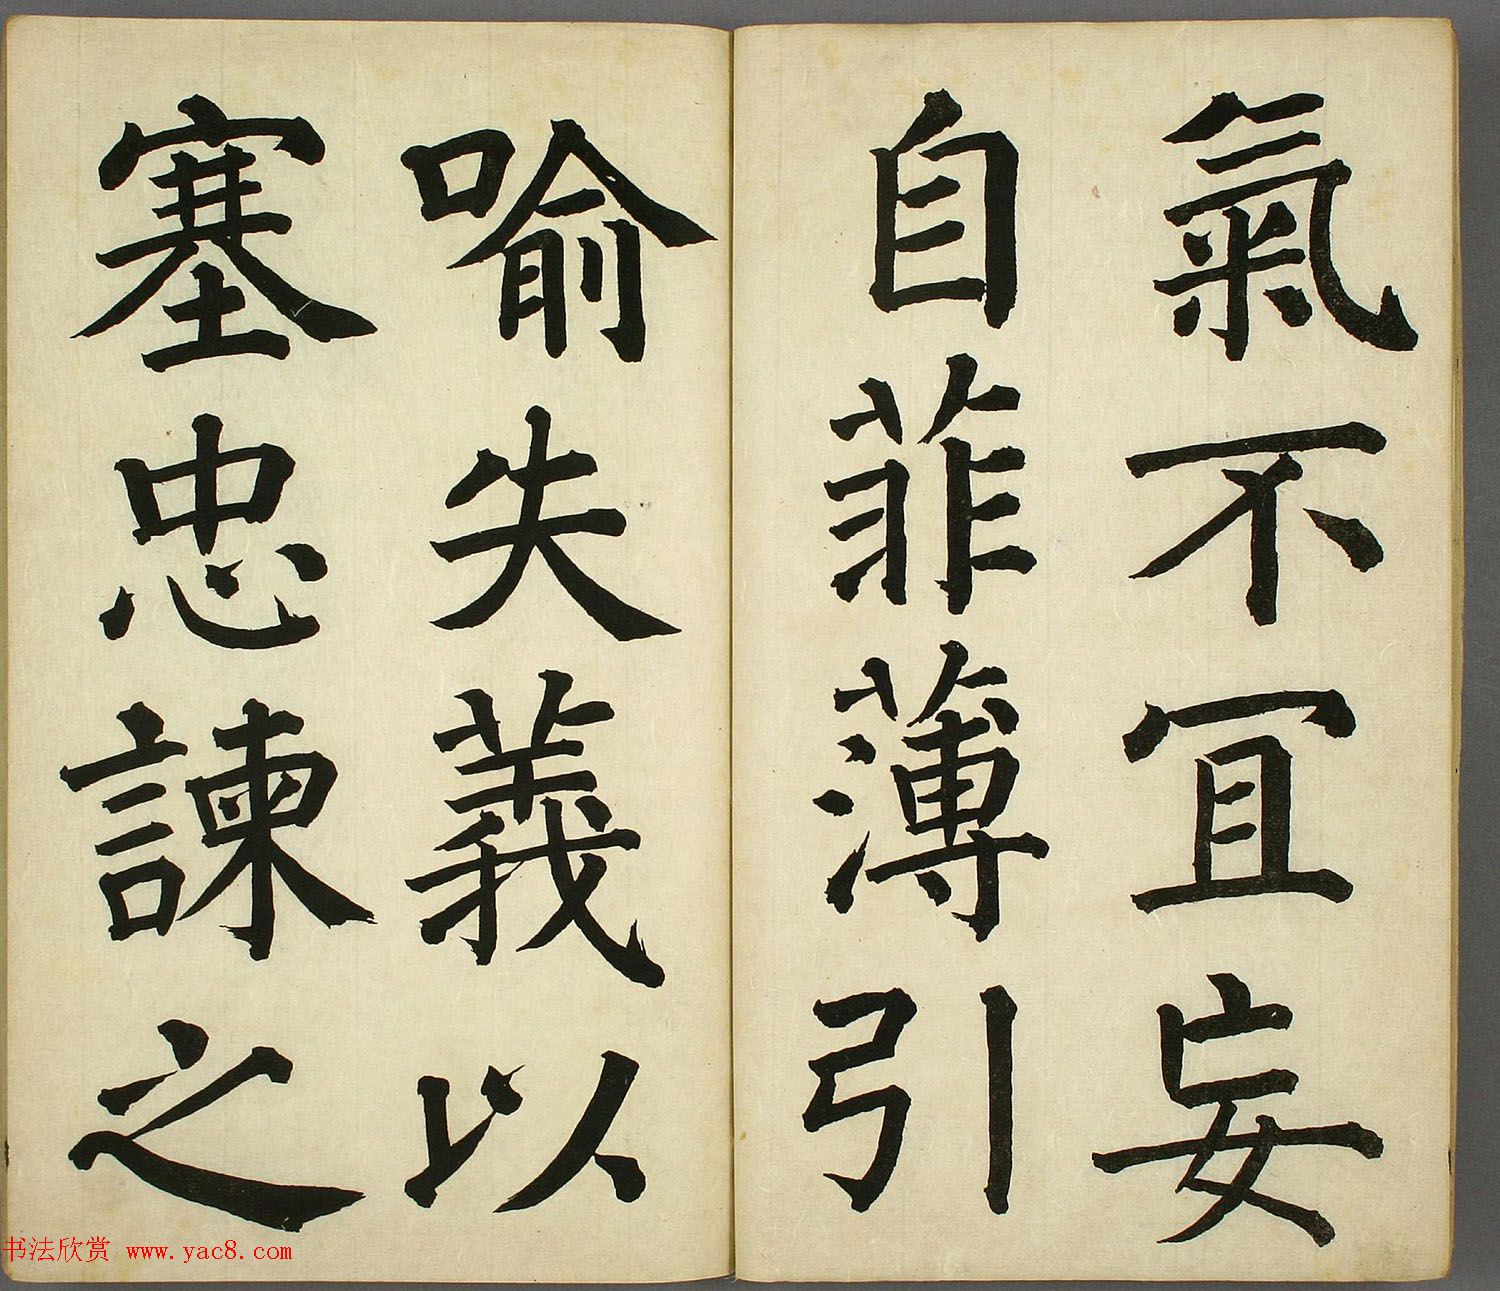 氣不冝妄
自菲薄引
喻失義以
塞忠諫之
书法欣赏 www.yac8.com